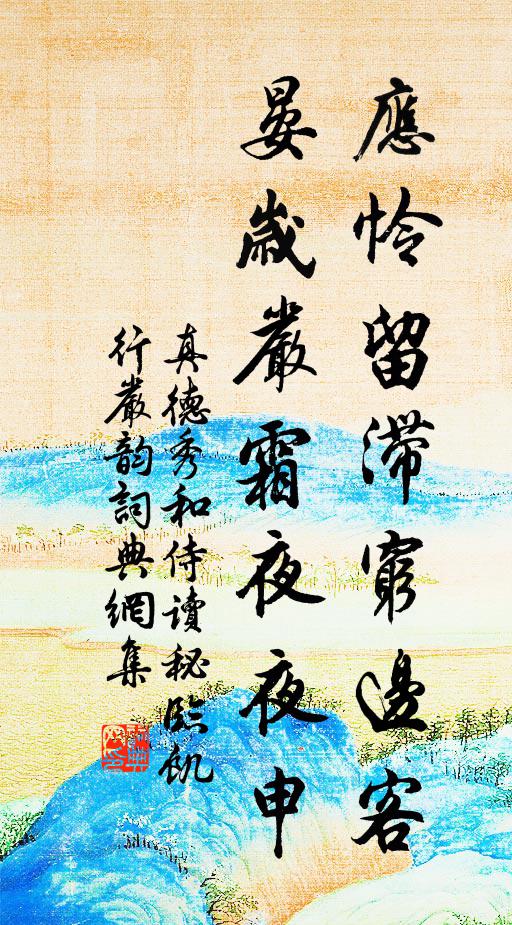 應怜留滯窮邊客
晏歲嚴霜夜夜申
真德秀和侍讀秘臨飢
行嚴韵詞典網集